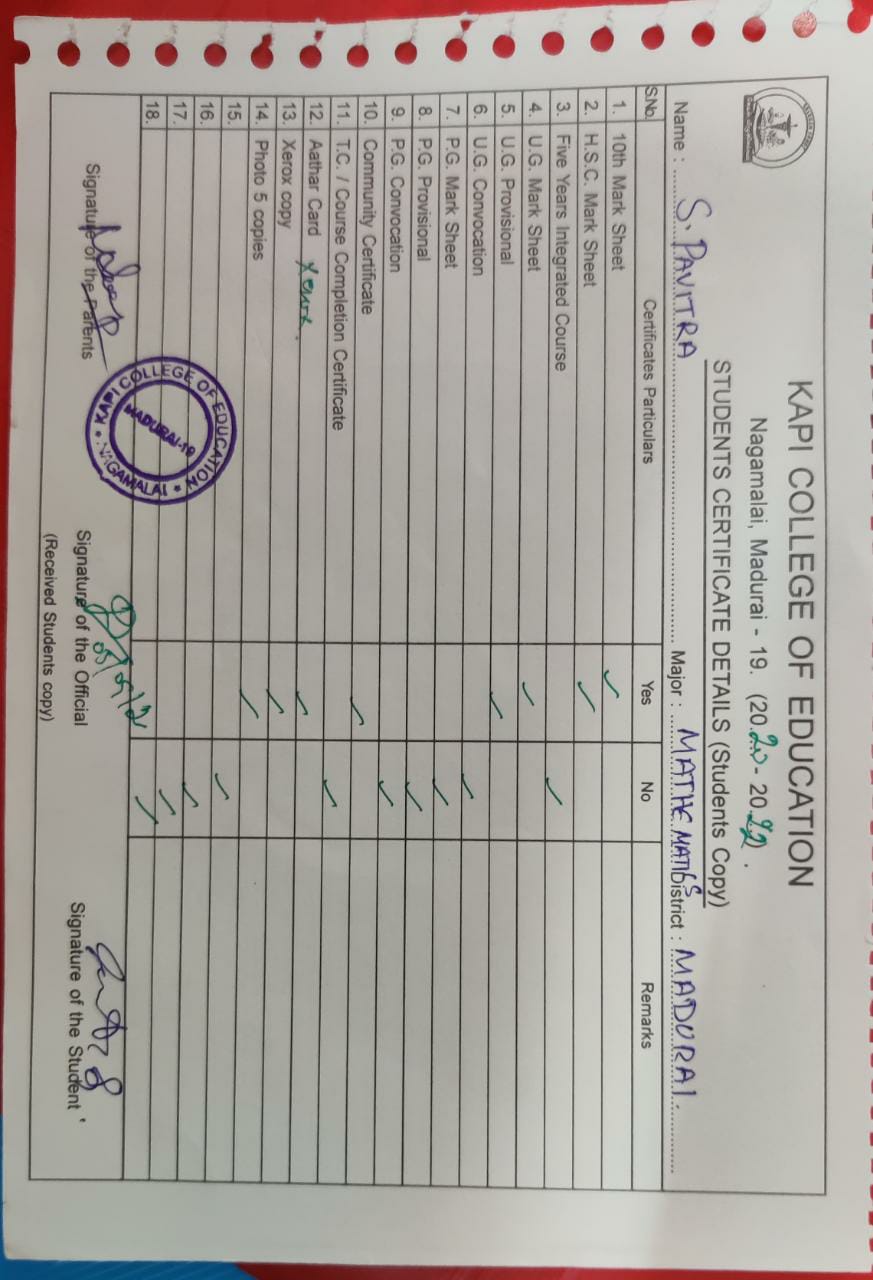 KAPI COLLEGE OF EDUCATION
Nagamalai, Madurai - 19. (2020 - 2022).
STUDENTS CERTIFICATE DETAILS (Students Copy)
Name : S. PAVITRA Major : MATHEMATICS District : MADURAI.
S.No. Certificates Particulars Yes No Remarks
1. 10th Mark Sheet ✓
2. H.S.C. Mark Sheet ✓
3. Five Years Integrated Course ✓
4. U.G. Mark Sheet ✓
5. U.G. Provisional ✓
6. U.G. Convocation ✓
7. P.G. Mark Sheet ✓
8. P.G. Provisional ✓
9. P.G. Convocation ✓
10. Community Certificate ✓
11. T.C. / Course Completion Certificate ✓
12. Aathar Card Xerox. ✓
13. Xerox copy ✓
14. Photo 5 copies ✓
15. ✓
16. ✓
17. ✓
18. ✓
KAPI COLLEGE OF EDUCATION
MADURAI-19
NAGAMALAI
Signature of the Parents Signature of the Official Signature of the Student
(Received Students copy)